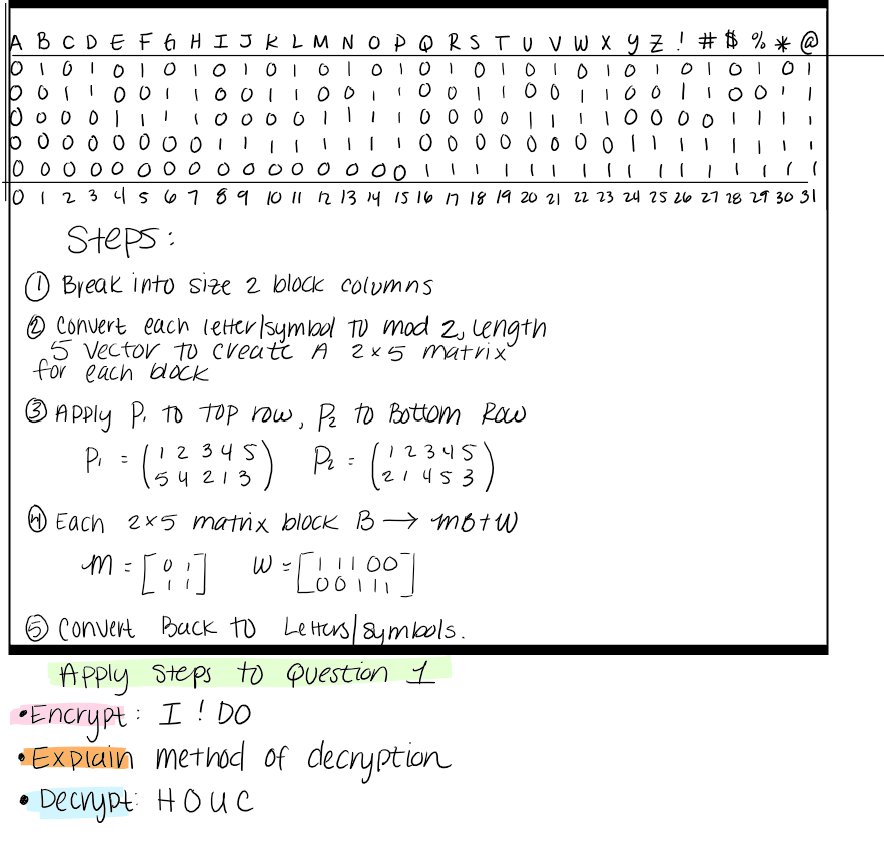 A B C D E F G H I J K L M N O P Q R S T U V W X Y Z ! # $ % * @
0 1 0 1 0 1 0 1 0 1 0 1 0 1 0 1 0 1 0 1 0 1 0 1 0 1 0 1 0 1 0 1
0 0 1 1 0 0 1 1 0 0 1 1 0 0 1 1 0 0 1 1 0 0 1 1 0 0 1 1 0 0 1 1
0 0 0 0 1 1 1 1 0 0 0 0 1 1 1 1 0 0 0 0 1 1 1 1 0 0 0 0 1 1 1 1
0 0 0 0 0 0 0 0 1 1 1 1 1 1 1 1 0 0 0 0 0 0 0 0 1 1 1 1 1 1 1 1
0 0 0 0 0 0 0 0 0 0 0 0 0 0 0 0 1 1 1 1 1 1 1 1 1 1 1 1 1 1 1 1
0 1 2 3 4 5 6 7 8 9 10 11 12 13 14 15 16 17 18 19 20 21 22 23 24 25 26 27 28 29 30 31
Steps:
① Break into size 2 block columns
② Convert each letter/symbol to mod 2, length
5 vector to create A 2×5 matrix
for each block
③ Apply P₁ to top row, P₂ to Bottom Row
P₁ = (1 2 3 4 5 / 5 4 2 1 3) P₂ = (1 2 3 4 5 / 2 1 4 5 3)
④ Each 2×5 matrix block B → mB+W
m = [0 1 / 1 1] W = [1 1 1 0 0 / 0 0 1 1 1]
⑤ Convert Back to Letters/symbols.
Apply Steps to Question 1
•Encrypt: I ! DO
•Explain method of decryption
•Decrypt: H O U C